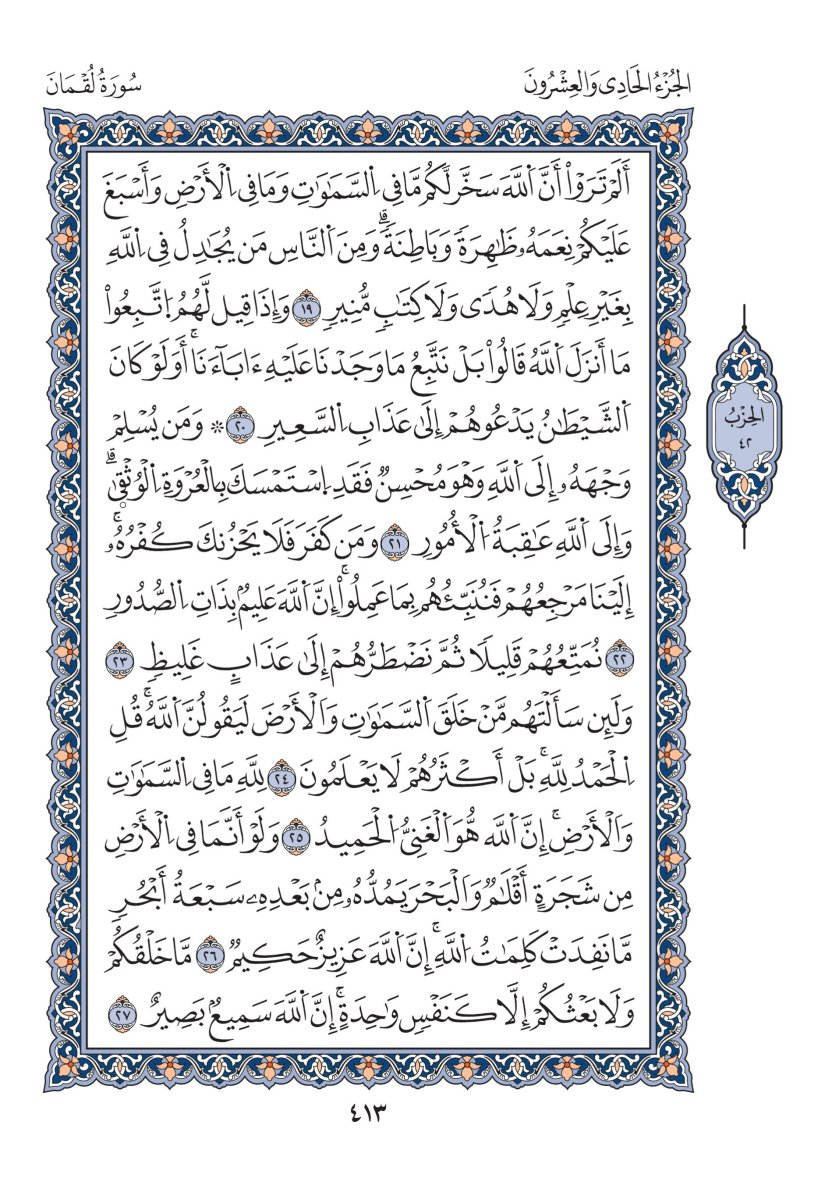 الجُزْءُ الحَادِى وَالعِشْرُونَ
سُورَةُ لُقْمَانَ
أَلَمْ تَرَوْاْ أَنَّ اَ۬للَّهَ سَخَّرَ لَكُم مَّا فِے اِ۬لسَّمَٰوَٰتِ وَمَا فِے اِ۬لْأَرْضِ وَأَسْبَغَ
عَلَيْكُمْ نِعَمَهُۥ ظَٰهِرَةٗ وَبَاطِنَةٗۗ وَمِنَ اَ۬لنَّاسِ مَن يُجَٰدِلُ فِے اِ۬للَّهِ
بِغَيْرِ عِلْمٖ وَلَا هُدٗى وَلَا كِتَٰبٖ مُّنِيرٖ ١٩ وَإِذَا قِيلَ لَهُمُ اُ۪تَّبِعُواْ
مَا أَنزَلَ اَ۬للَّهُ قَالُواْ بَلْ نَتَّبِعُ مَا وَجَدْنَا عَلَيْهِ ءَابَآءَنَاۚ أَوَلَوْ كَانَ
اَ۬لشَّيْطَٰنُ يَدْعُوهُمْ إِلَىٰ عَذَابِ اِ۬لسَّعِيرِ ٢٠ ۞ وَمَن يُسْلِمْ
وَجْهَهُۥ إِلَى اَ۬للَّهِ وَهْوَ مُحْسِنٞ فَقَدِ اِ۪سْتَمْسَكَ بِالْعُرْوَةِ اِ۬لْوُثْق۪يٰۗ
وَإِلَى اَ۬للَّهِ عَٰقِبَةُ اُ۬لْأُمُورِ ٢١ وَمَن كَفَرَ فَلَا يَحْزُنكَ كُفْرُهُۥۚ
إِلَيْنَا مَرْجِعُهُمْ فَنُنَبِّئُهُم بِمَا عَمِلُواْۚ إِنَّ اَ۬للَّهَ عَلِيمُۢ بِذَاتِ اِ۬لصُّدُورِ
٢٢ نُمَتِّعُهُمْ قَلِيلٗا ثُمَّ نَضْطَرُّهُمْ إِلَىٰ عَذَابٍ غَلِيظٖ ٢٣
وَلَئِن سَأَلْتَهُم مَّنْ خَلَقَ اَ۬لسَّمَٰوَٰتِ وَالْأَرْضَ لَيَقُولُنَّ اَ۬للَّهُۚ قُلِ
اِ۬لْحَمْدُ لِلَّهِۚ بَلْ أَكْثَرُهُمْ لَا يَعْلَمُونَ ٢٤ لِلَّهِ مَا فِے اِ۬لسَّمَٰوَٰتِ
وَالْأَرْضِۚ إِنَّ اَ۬للَّهَ هُوَ اَ۬لْغَنِيُّ اُ۬لْحَمِيدُ ٢٥ وَلَوْ أَنَّمَا فِے اِ۬لْأَرْضِ
مِن شَجَرَةٍ أَقْلَٰمٞ وَالْبَحْرَ يَمُدُّهُۥ مِنۢ بَعْدِهِۦ سَبْعَةُ أَبْحُرٖ
مَّا نَفِدَتْ كَلِمَٰتُ اُ۬للَّهِۚ إِنَّ اَ۬للَّهَ عَزِيزٌ حَكِيمٞ ٢٦ مَّا خَلْقُكُمْ
وَلَا بَعْثُكُمْ إِلَّا كَنَفْسٖ وَٰحِدَةٍۚ إِنَّ اَ۬للَّهَ سَمِيعُۢ بَصِيرٌ ٢٧
الحِزْبُ
٤٢
٤١٣